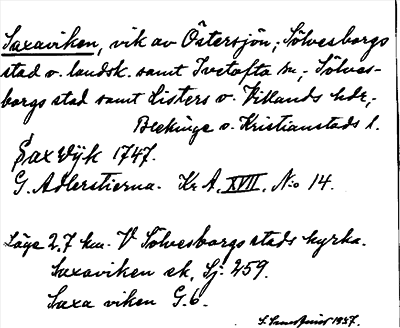 Saxaviken, vik av Östersjön; Sölvesborgs
stad o. landsk. samt Ivetofta sn,; Sölves-
borgs stad samt Listers o. Villands hdr,;
Blekinge o. Kristianstads l.
Sax Wijk 1747.
G. Adlerstierna. Kr A. XVII. N:o 14.
Läge 2,7 km. V Sölvesborgs stads kyrka.
Saxaviken ek. Sj. 259.
Saxa viken G.6.
1937.